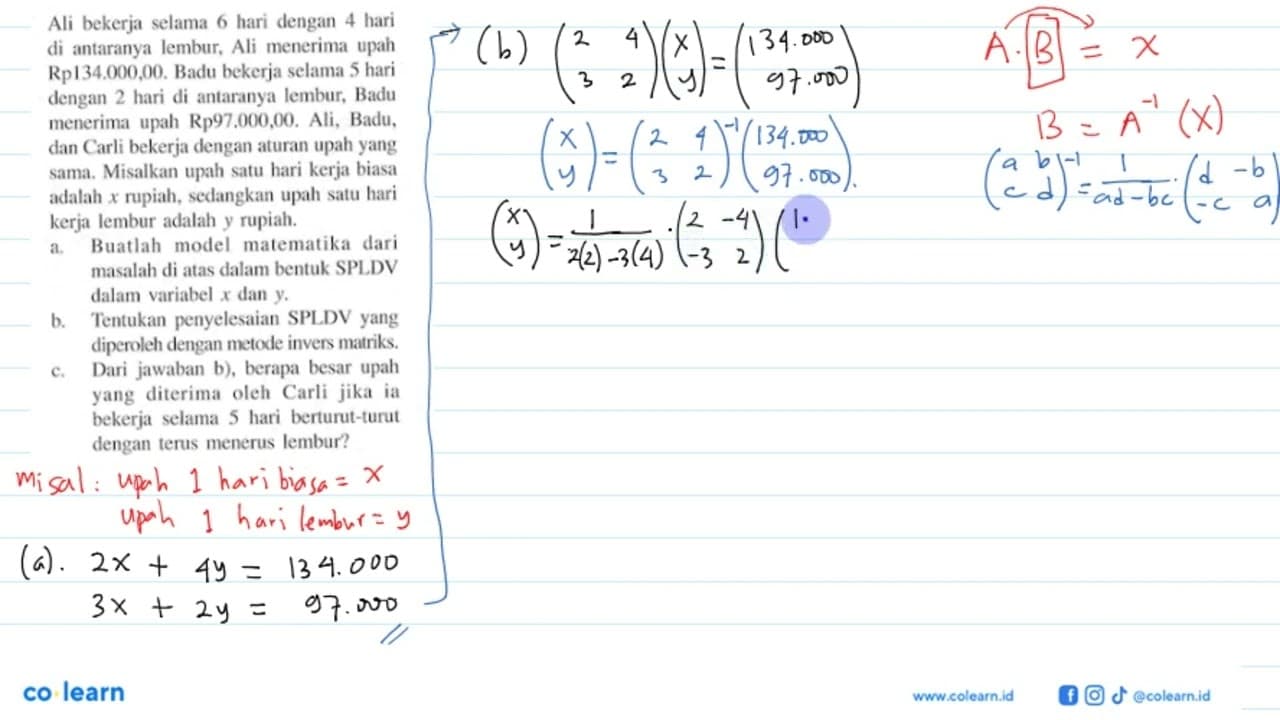 Ali bekerja selama 6 hari dengan 4 hari
di antaranya lembur, Ali menerima upah
Rp134.000,00. Badu bekerja selama 5 hari
dengan 2 hari di antaranya lembur, Badu
menerima upah Rp97.000,00. Ali, Badu,
dan Carli bekerja dengan aturan upah yang
sama. Misalkan upah satu hari kerja biasa
adalah x rupiah, sedangkan upah satu hari
kerja lembur adalah y rupiah.
a. Buatlah model matematika dari
masalah di atas dalam bentuk SPLDV
dalam variabel x dan y.
b. Tentukan penyelesaian SPLDV yang
diperoleh dengan metode invers matriks.
c. Dari jawaban b), berapa besar upah
yang diterima oleh Carli jika ia
bekerja selama 5 hari berturut-turut
dengan terus menerus lembur?
misal : upah 1 hari biasa = x
upah 1 hari lembur = y
(a). 2x + 4y = 134.000
3x + 2y = 97.000
(b) (2 4 3 2)(x y) = (134.000 97.000)
(x y) = (2 4 3 2)^-1 (134.000 97.000).
(x y) = 1/2(2)-3(4) · (2 -4 -3 2) (1·
A · B = x
B = A^-1 (x)
(a b c d)^-1 = 1/ad-bc · (d -b -c a)
co learn
www.colearn.id
@colearn.id